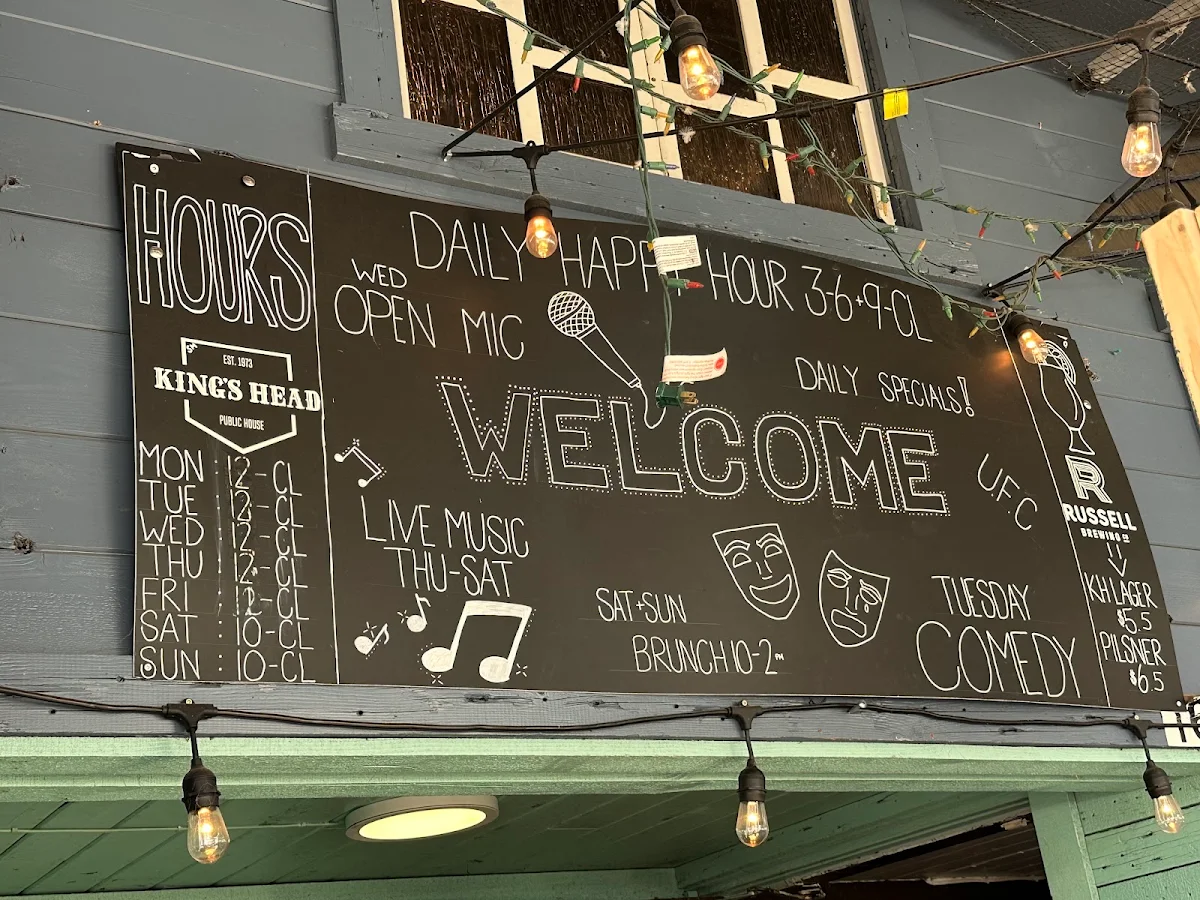 HOURS
EST. 1973
KING'S HEAD
PUBLIC HOUSE
MON : 12-CL
TUE : 12-CL
WED : 12-CL
THU : 12-CL
FRI : 12-CL
SAT : 10-CL
SUN : 10-CL
DAILY HAPPY HOUR 3-6+9-CL
WED
OPEN MIC
DAILY SPECIALS!
WELCOME
UFC
LIVE MUSIC
THU-SAT
SAT+SUN
BRUNCH 10-2PM
TUESDAY
COMEDY
R
RUSSELL
BREWING CO
KH LAGER
$5.5
PILSNER
$6.5